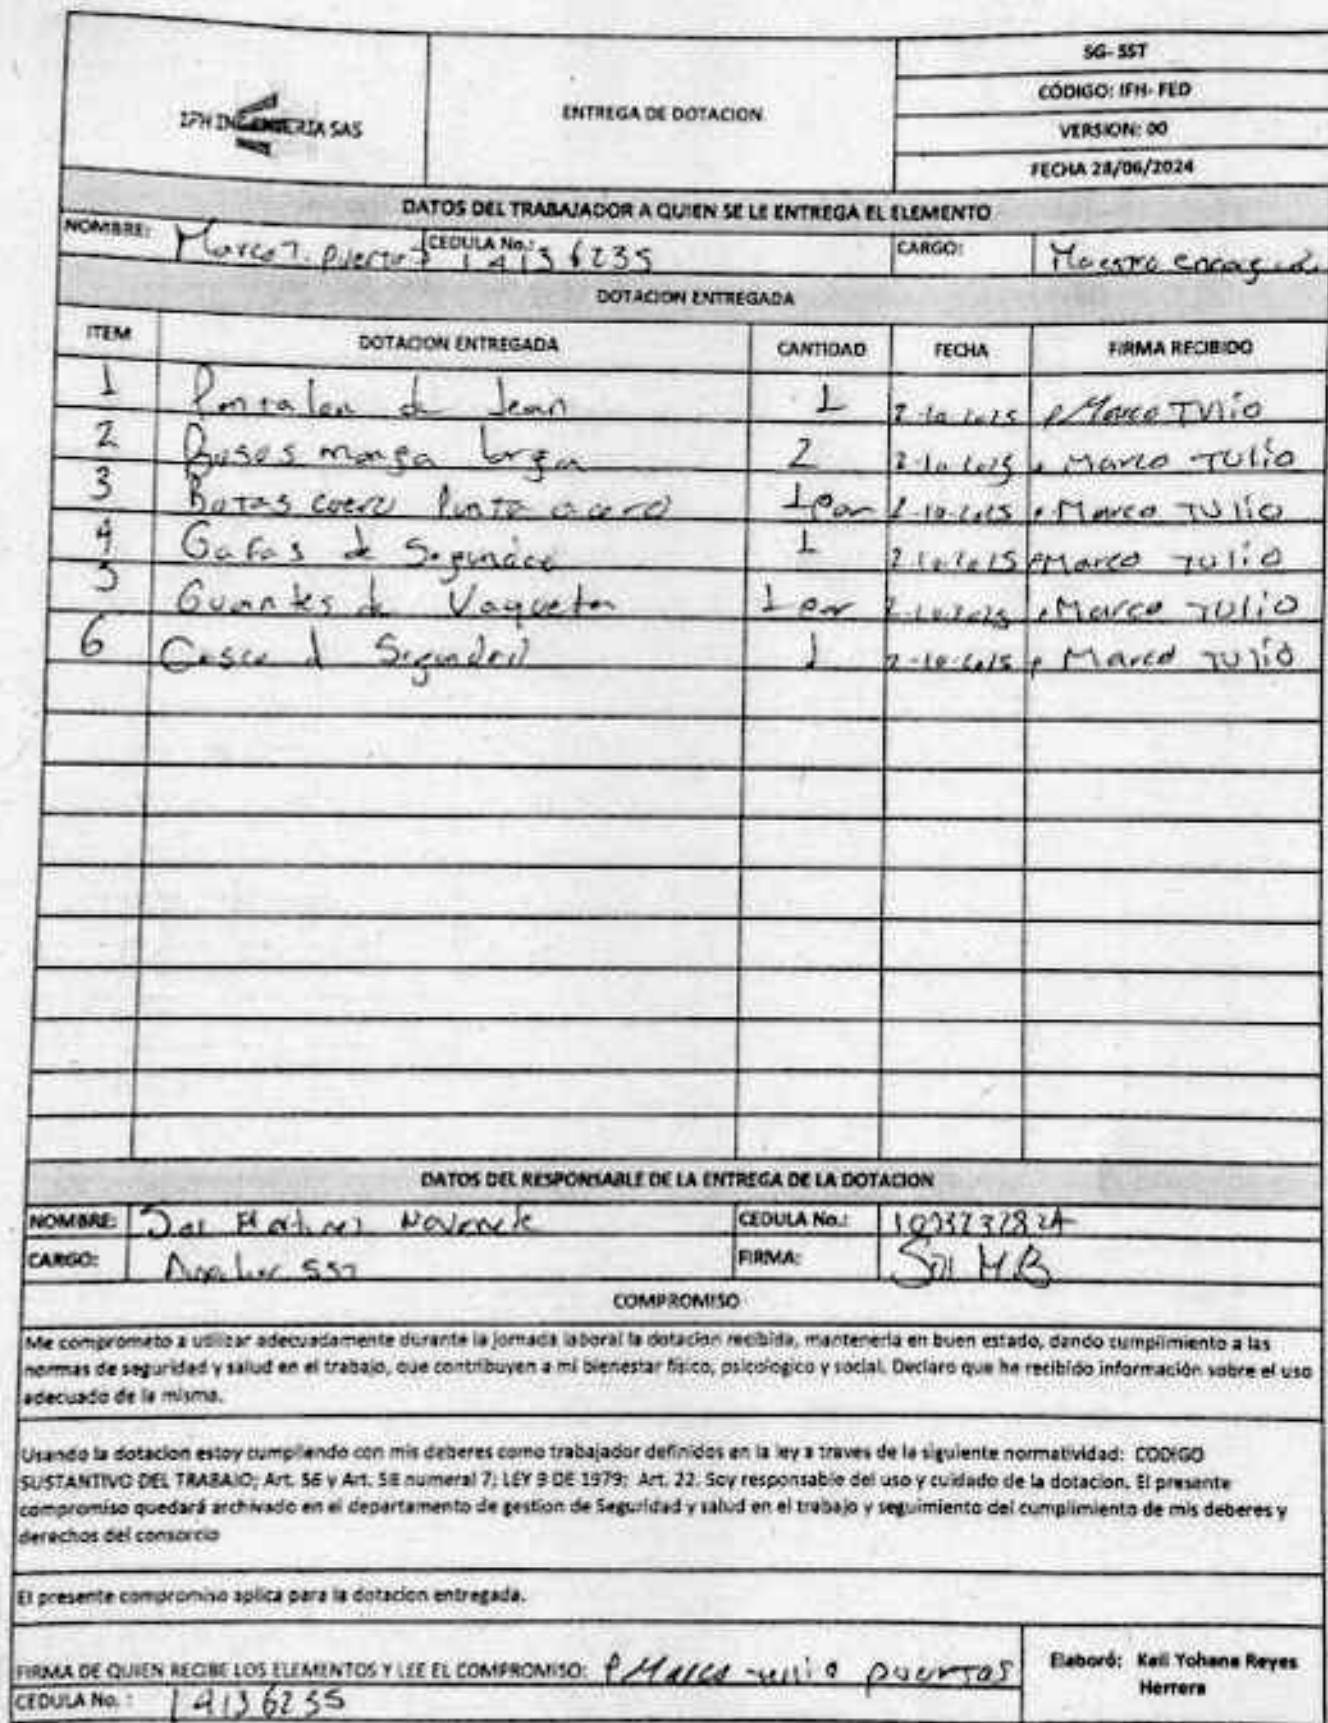 IFH INGENIERIA SAS
ENTREGA DE DOTACION
SG- SST
CÓDIGO: IFH- FED
VERSION: 00
FECHA 28/06/2024
DATOS DEL TRABAJADOR A QUIEN SE LE ENTREGA EL ELEMENTO
NOMBRE: Marco T. puertas CEDULA No.: 14136235 CARGO: Maestro
DOTACION ENTREGADA
ITEM DOTACION ENTREGADA CANTIDAD FECHA FIRMA RECIBIDO
1 Pantalon de Jean 1 2-10-2025 Marco TULIO
2 Busos manga larga 2 2-10-2025 Marco TULIO
3 Botas cuero Punta acero 1 par 2-10-2025 Marco TULIO
4 Gafas de 1 2-10-2025 Marco TULIO
5 Guantes de Vaqueta 1 par 2-10-2025 Marco TULIO
6 Casco d 1 2-10-2025 Marco TULIO
DATOS DEL RESPONSABLE DE LA ENTREGA DE LA DOTACION
NOMBRE: CEDULA No.:
CARGO: SST FIRMA: Sol M.B
COMPROMISO
Me comprometo a utilizar adecuadamente durante la jornada laboral la dotacion recibida, mantenerla en buen estado, dando cumplimiento a las
normas de seguridad y salud en el trabajo, que contribuyen a mi bienestar físico, psicologico y social. Declaro que he recibido información sobre el uso
adecuado de la misma.
Usando la dotacion estoy cumpliendo con mis deberes como trabajador definidos en la ley a traves de la siguiente normatividad: CODIGO
SUSTANTIVO DEL TRABAJO; Art. 56 y Art. 58 numeral 7; LEY 9 DE 1979; Art. 22. Soy responsable del uso y cuidado de la dotacion. El presente
compromiso quedará archivado en el departamento de gestion de Seguridad y salud en el trabajo y seguimiento del cumplimiento de mis deberes y
derechos del consorcio
El presente compromiso aplica para la dotacion entregada.
FIRMA DE QUIEN RECIBE LOS ELEMENTOS Y LEE EL COMPROMISO: Marco tulio puertas
CEDULA No. : 14136235
Elaboró: Keil Yohana Reyes
Herrera